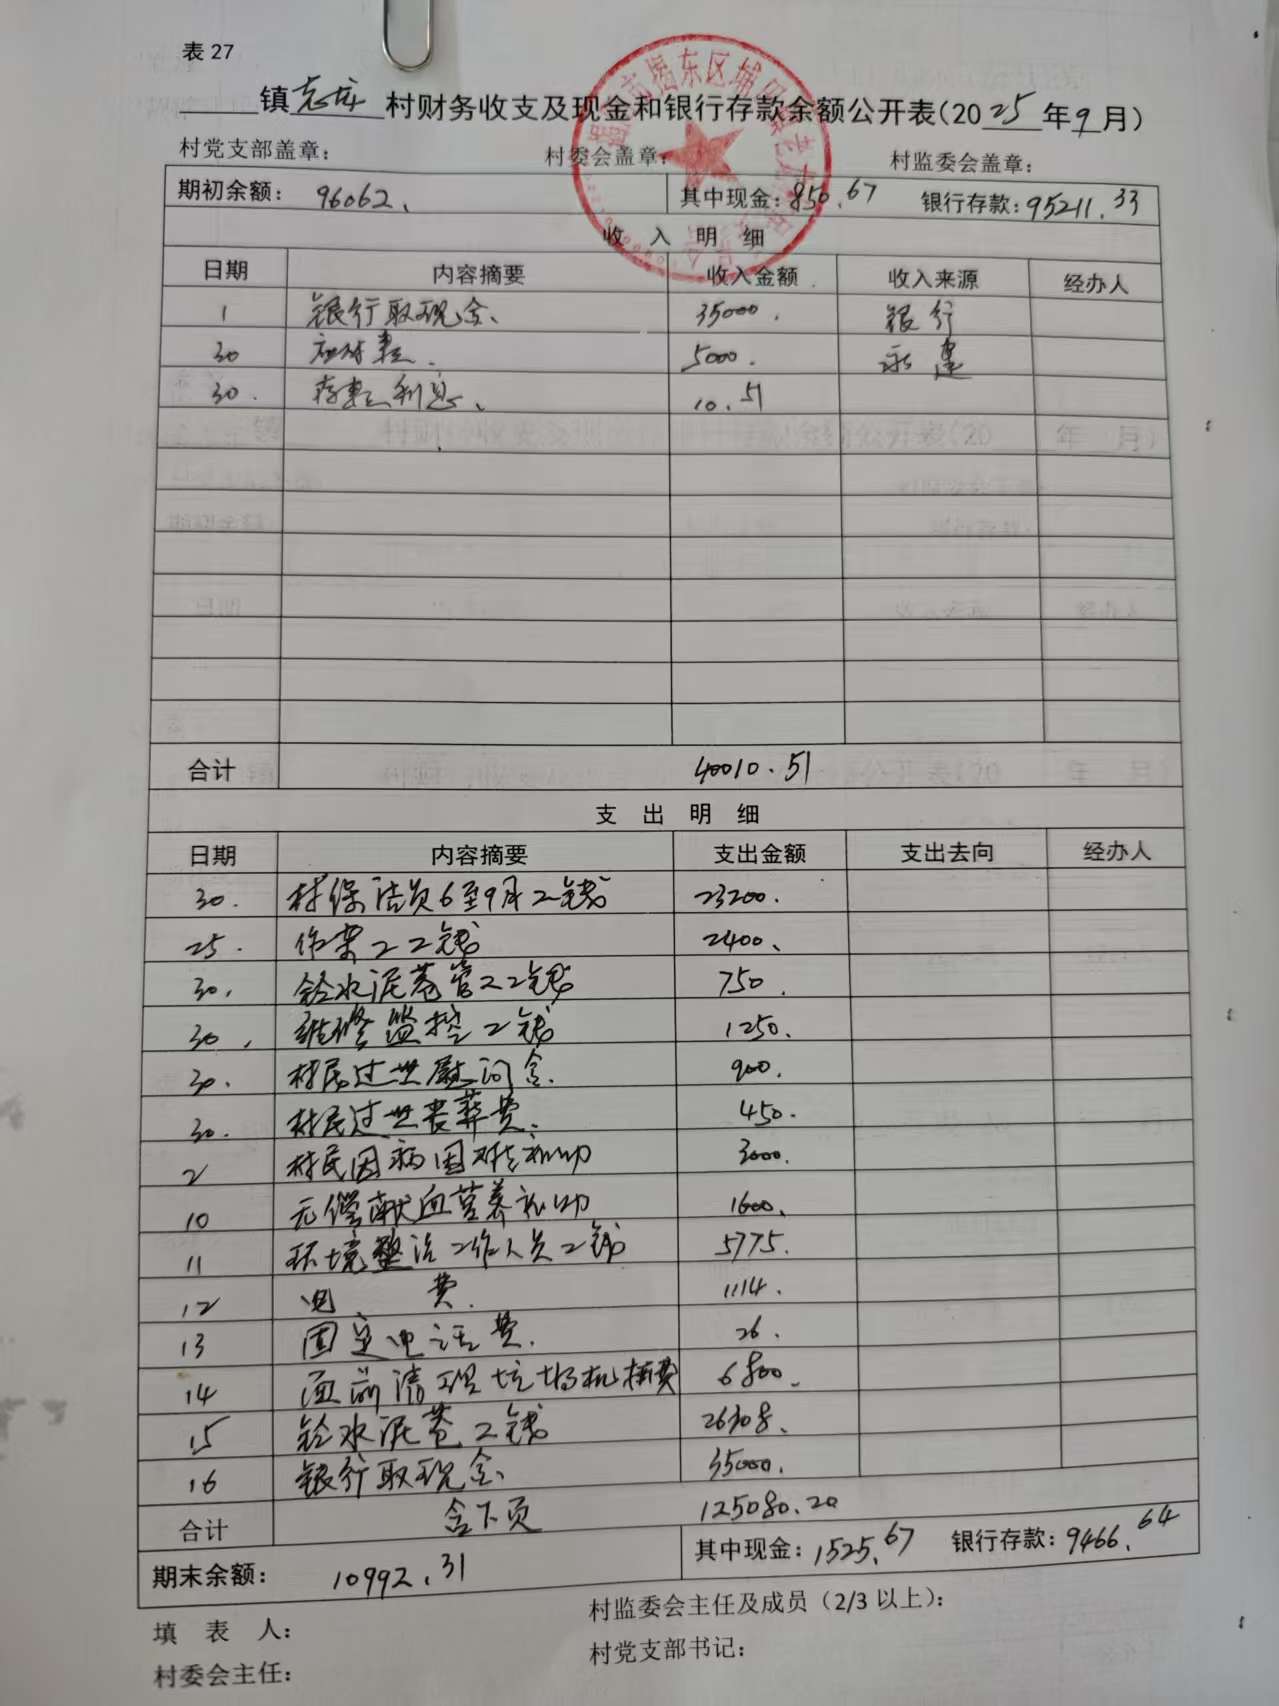 表 27
镇志成村财务收支及现金和银行存款余额公开表(2025年9月)
村党支部盖章： 村委会盖章： 村监委会盖章：
期初余额： 96062. 其中现金：850.67 银行存款：95211.33
收 入 明 细
日期 内容摘要 收入金额 收入来源 经办人
1 银行取现金、 35000. 银行
30 应付款. 5000. 永建
30. 存款利息、 10.51
合计 40010.51
支 出 明 细
日期 内容摘要 支出金额 支出去向 经办人
30. 村保洁员6至9月工钱 23200.
25. 作架工工钱 2400、
30. 铃水泥巷管工工钱 750.
30. 维修监控工钱 1250.
30. 村民过世慰问金. 900.
30. 村民过世丧葬费. 450.
2 村民因病困难补助 3000.
10 无偿献血营养补助 1600、
11 环境整治工作人员工钱 5775.
12 电 费. 1114.
13 固定电话费. 26.
14 面前清理垃圾机械费 6800、
15 铃水泥巷工钱 26308、
16 银行取现金、 35000.
合计 含下页 125080.20
期末余额： 10992.31 其中现金：1525.67 银行存款：9466.64
填 表 人： 村监委会主任及成员（2/3 以上）：
村委会主任： 村党支部书记：